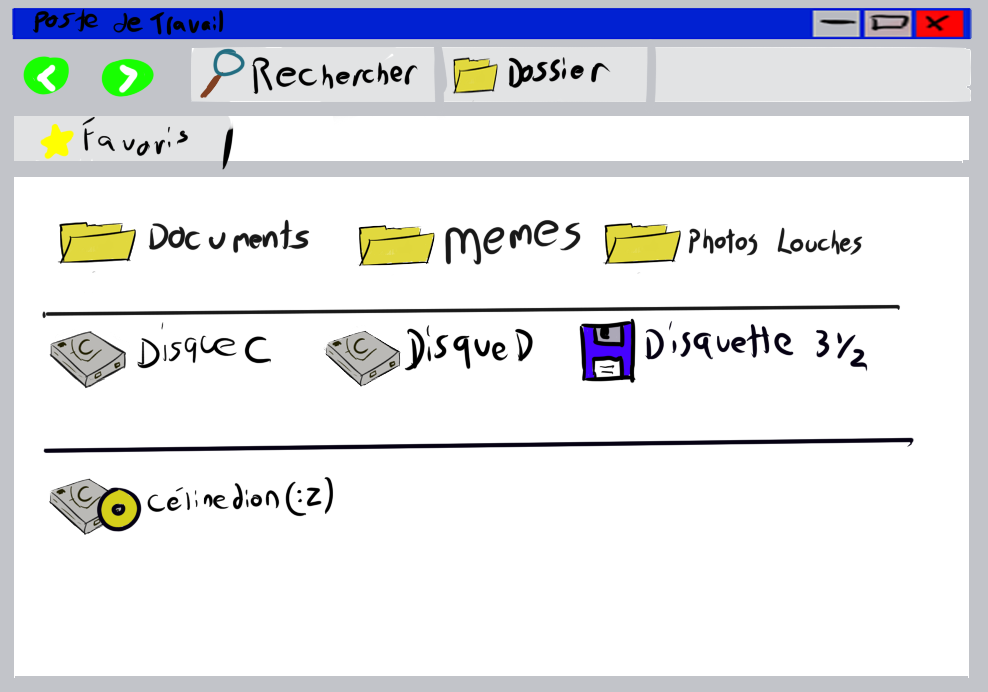 Poste de Travail
Rechercher Dossier
Favoris
Documents memes Photos Louches
C Disque C C Disque D Disquette 3 1/2
C célinedion (:Z)